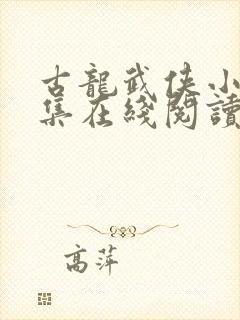 古龍武俠小
集在綫閱讀
高萍